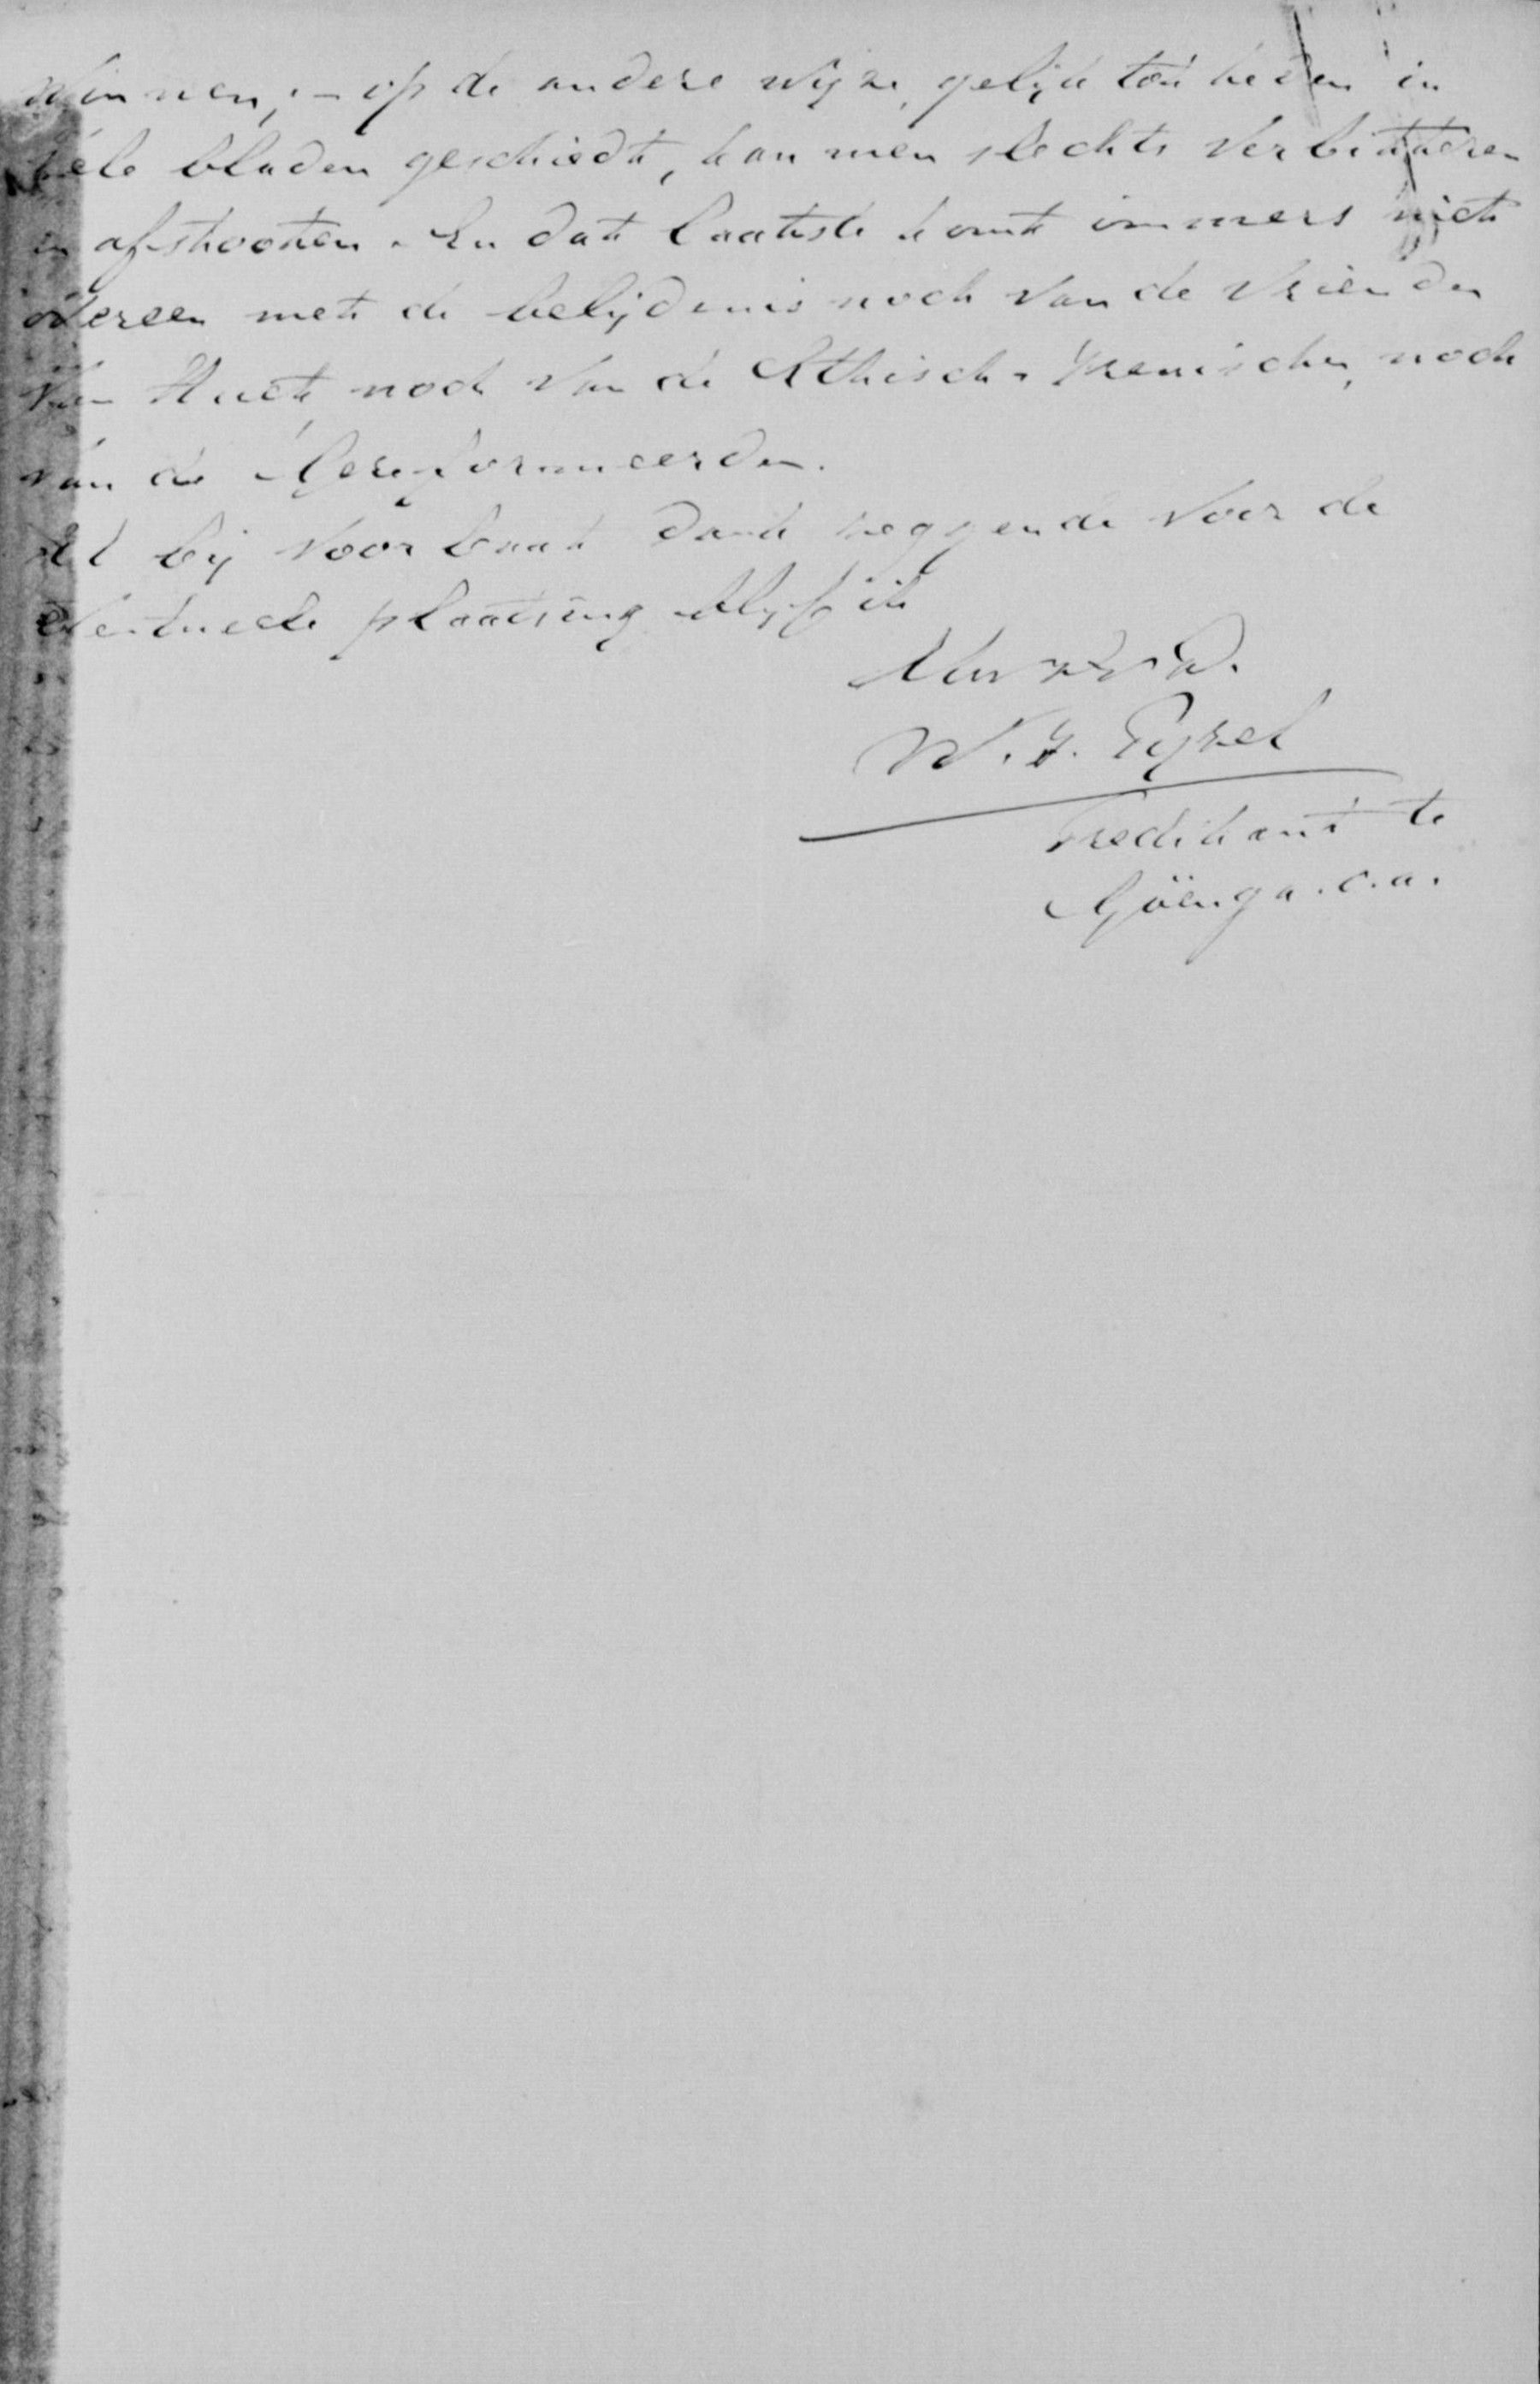 winnen; – op de andere wijze, gelijk tot heden in
vele bladen geschiedt, kan men slechts verbitteren
en afstooten. En dat laatste komt immers niet
overeen met de belijdenis noch van de vrienden
van Huet, noch van de Ethisch-Irenischen, noch
van de Gereformeerden.
Al bij voorbaat dank zeggende voor de
plaatsing blijf ik
W. G.
Predikant te
Goënga c.a.